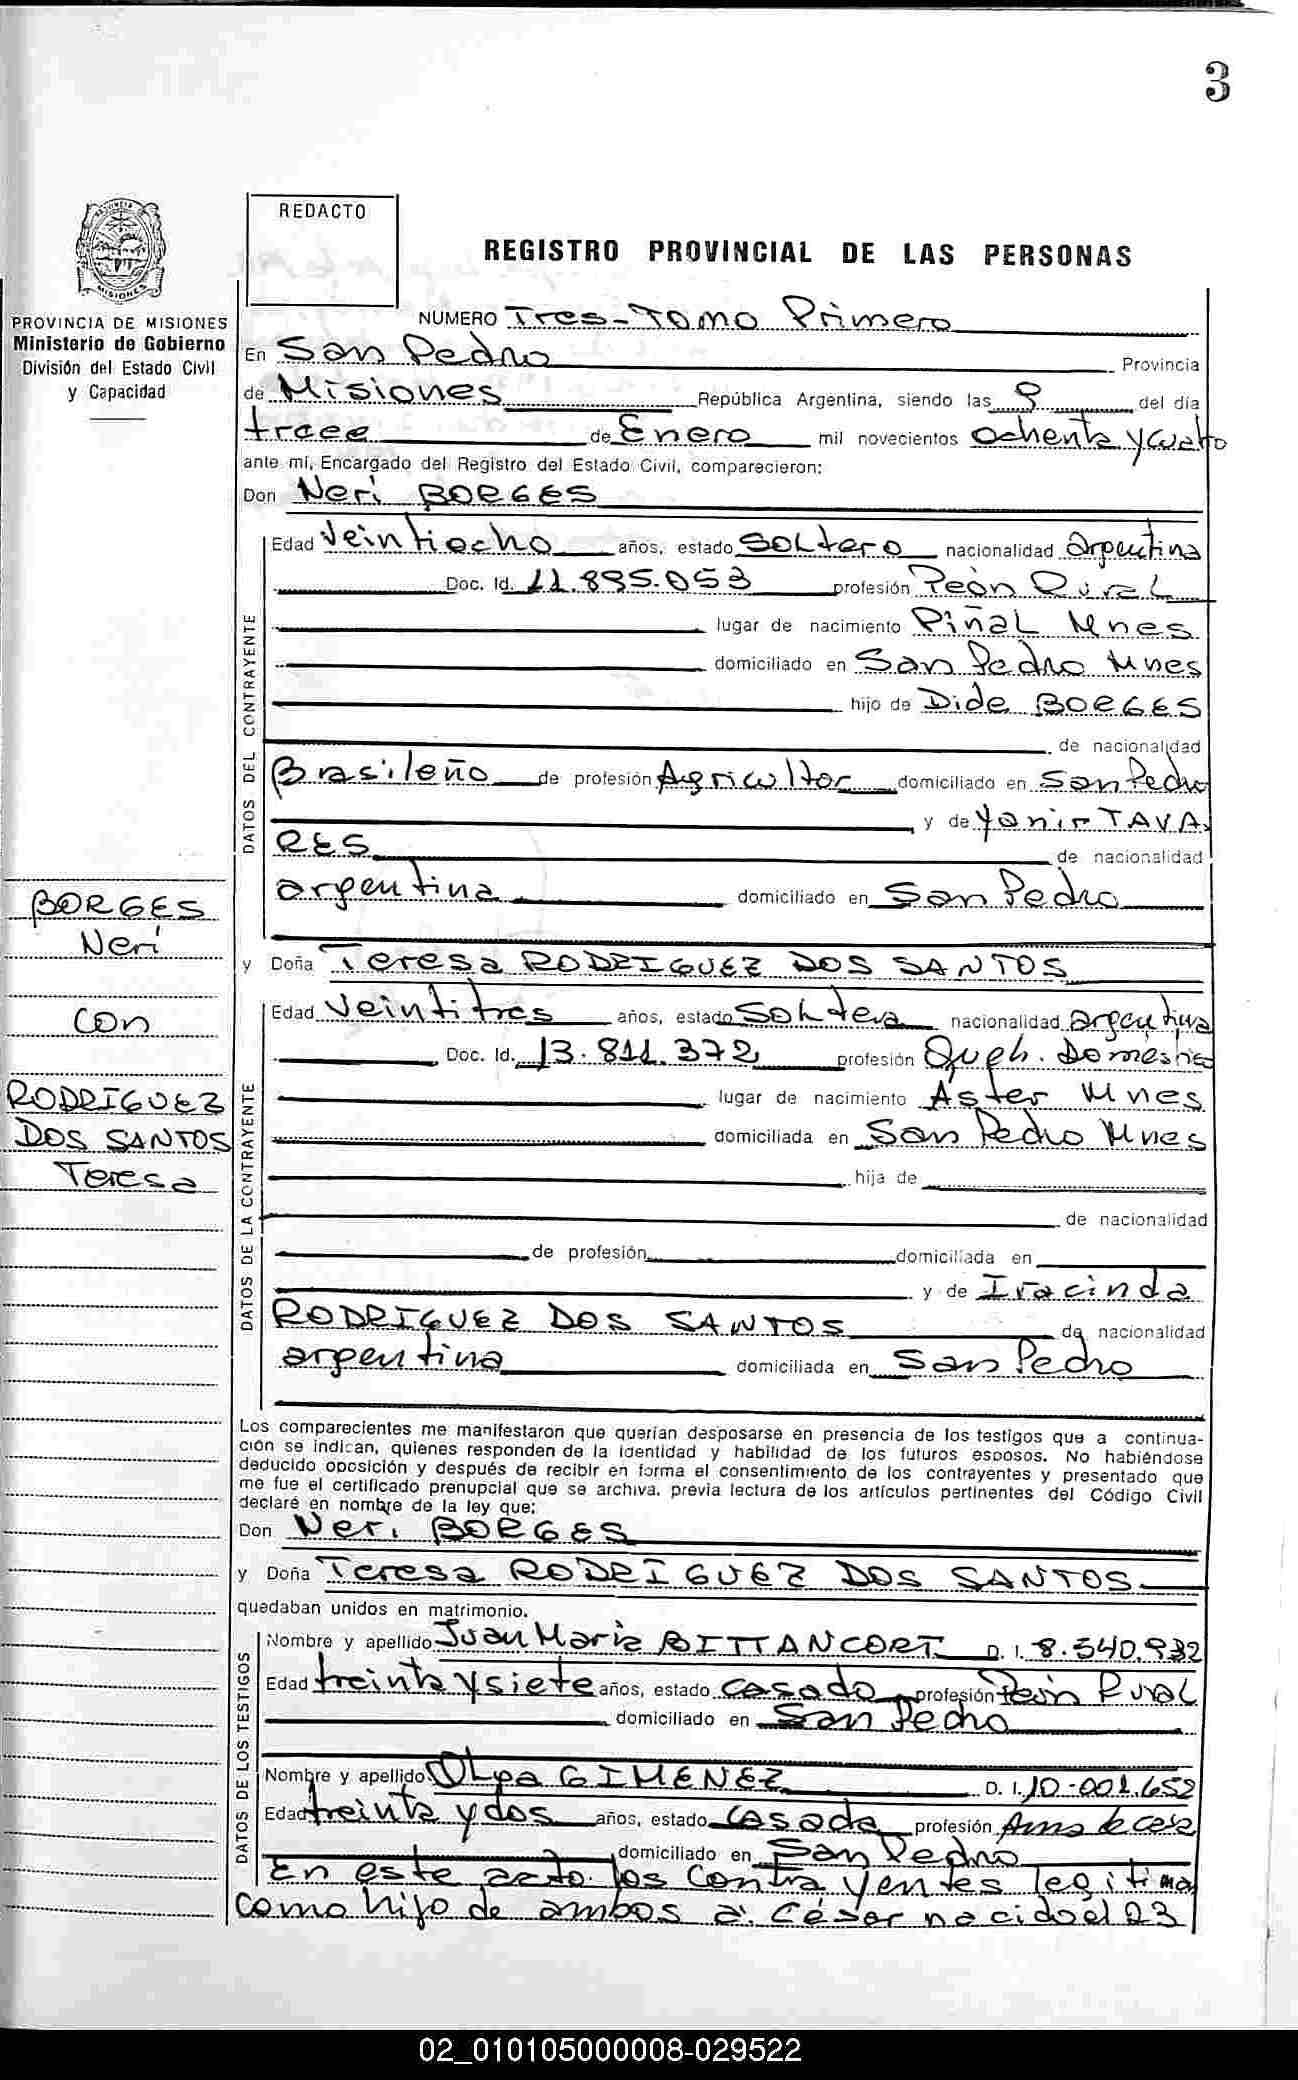 3
REDACTO
REGISTRO PROVINCIAL DE LAS PERSONAS
PROVINCIA DE MISIONES
Ministerio de Gobierno
División del Estado Civil
y Capacidad
NUMERO Tres-TOMO Primero
En San Pedro Provincia
de Misiones República Argentina, siendo las 9 del día
trece de Enero mil novecientos ochenta y cuatro
ante mí, Encargado del Registro del Estado Civil, comparecieron:
Don Neri BORGES
DATOS DEL CONTRAYENTE
Edad Veintiocho años, estado SOLtero nacionalidad argentina
Doc. Id. 11.895.053 profesión Peón Rural
lugar de nacimiento Piñal Mnes
domiciliado en San Pedro Mnes
hijo de Dide BORGES
de nacionalidad
Brasileño de profesión Agricultor domiciliado en San Pedro
y de Yanir TAVA
RES de nacionalidad
argentina domiciliado en San Pedro
BORGES
Neri
con
RODRIGUEZ
DOS SANTOS
Teresa
y Doña Teresa RODRIGUEZ DOS SANTOS
DATOS DE LA CONTRAYENTE
Edad Veintitres años, estado Soltera nacionalidad argentina
Doc. Id. 13.811.372 profesión Queh. Domestic
lugar de nacimiento Aster Mnes
domiciliada en San Pedro Mnes
hija de
de nacionalidad
de profesión domiciliada en
y de Iracinda
RODRIGUEZ DOS SANTOS de nacionalidad
argentina domiciliada en San Pedro
Los comparecientes me manifestaron que querían desposarse en presencia de los testigos que a continua-
ción se indican, quienes responden de la identidad y habilidad de los futuros esposos. No habiéndose
deducido oposición y después de recibir en forma el consentimiento de los contrayentes y presentado que
me fue el certificado prenupcial que se archiva, previa lectura de los artículos pertinentes del Código Civil
declaré en nombre de la ley que:
Don Neri BORGES
y Doña Teresa RODRIGUEZ DOS SANTOS
quedaban unidos en matrimonio.
DATOS DE LOS TESTIGOS
Nombre y apellido Juan Maria BITTANCORT D. I. 8.540.932
Edad treinta y siete años, estado casado profesión Peón Rural
domiciliado en San Pedro
Nombre y apellido Olga GIMENEZ D. I. 10.001.652
Edad treinta y dos años, estado casada profesión Ama de casa
domiciliado en San Pedro
En este acto los Contrayentes legitima
como hijo de ambos a: César nacido el 23
02_010105000008-029522